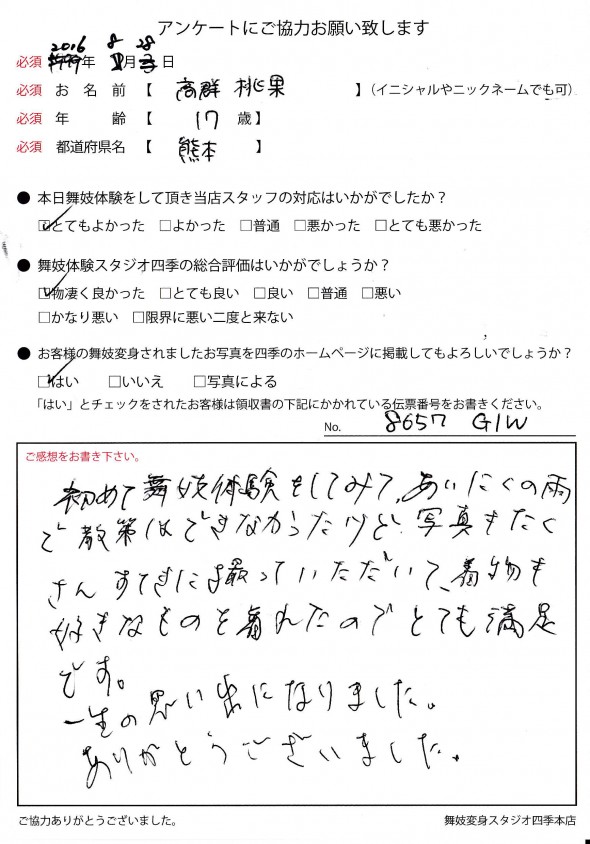 アンケートにご協力お願い致します
2016 8 28
必須 年 月 日
必須 お名前【 高群 桃果 】(イニシャルやニックネームでも可)
必須 年齢【 17 歳】
必須 都道府県名【 熊本 】
● 本日舞妓体験をして頂き当店スタッフの対応はいかがでしたか?
☑とてもよかった □よかった □普通 □悪かった □とても悪かった
● 舞妓体験スタジオ四季の総合評価はいかがでしょうか?
☑物凄く良かった □とても良い □良い □普通 □悪い
□かなり悪い □限界に悪い二度と来ない
● お客様の舞妓変身されましたお写真を四季のホームページに掲載してもよろしいでしょうか?
☑はい □いいえ □写真による
「はい」とチェックをされたお客様は領収書の下記にかかれている伝票番号をお書きください。
No. 8657 G1W
ご感想をお書き下さい。
初めて舞妓体験をしてみて、あいにくの雨
で散策はできなかったけど、写真もたく
さんすてきに撮っていただいて、着物も
好きなものを着れたのでとても満足
です。
一生の思い出になりました。
ありがとうございました。
ご協力ありがとうございました。 舞妓変身スタジオ四季本店